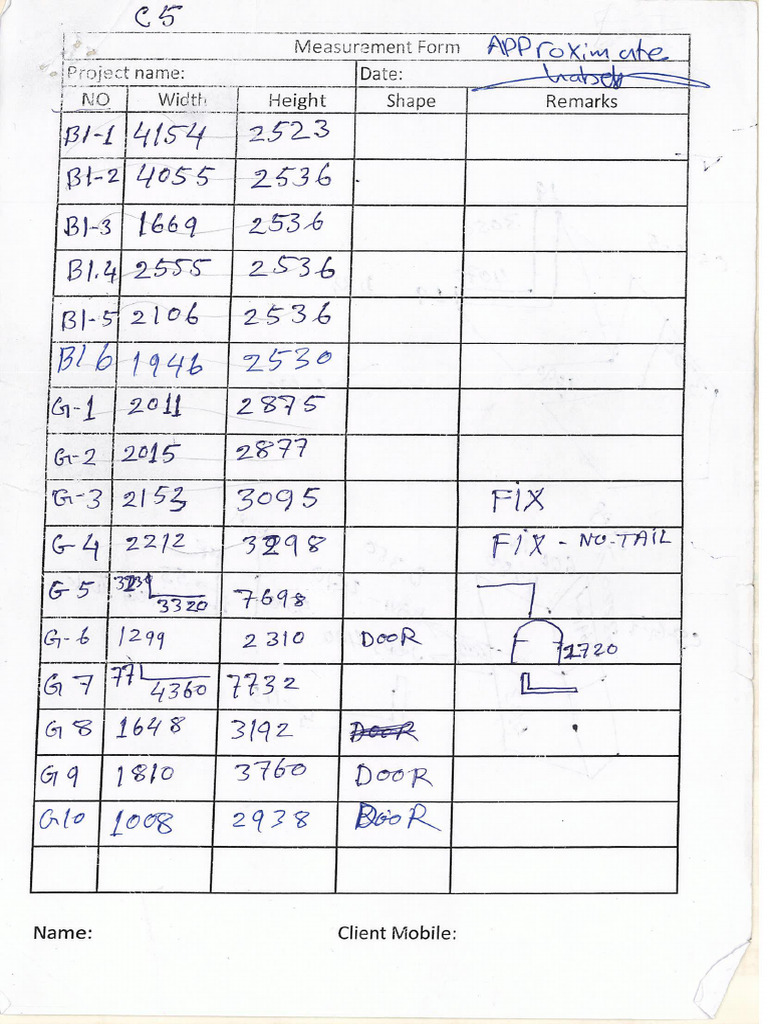 C5
Measurement Form APPRoximate
Project name: Date:
NO Width Height Shape Remarks
B1-1 4154 2523
B1-2 4055 2536
B1-3 1669 2536
B1.4 2555 2536
B1-5 2106 2536
B1 6 1946 2530
G-1 2011 2875
G-2 2015 2877
G-3 2153 3095 FIX
G 4 2212 3298 FIX - NO TAIL
G 5 3320 7698
G-6 1299 2310 DOOR 1720
G 7 77 4360 7732
G 8 1648 3192 DOOR
G 9 1810 3760 DOOR
G10 1008 2938 DOOR
Name: Client Mobile: